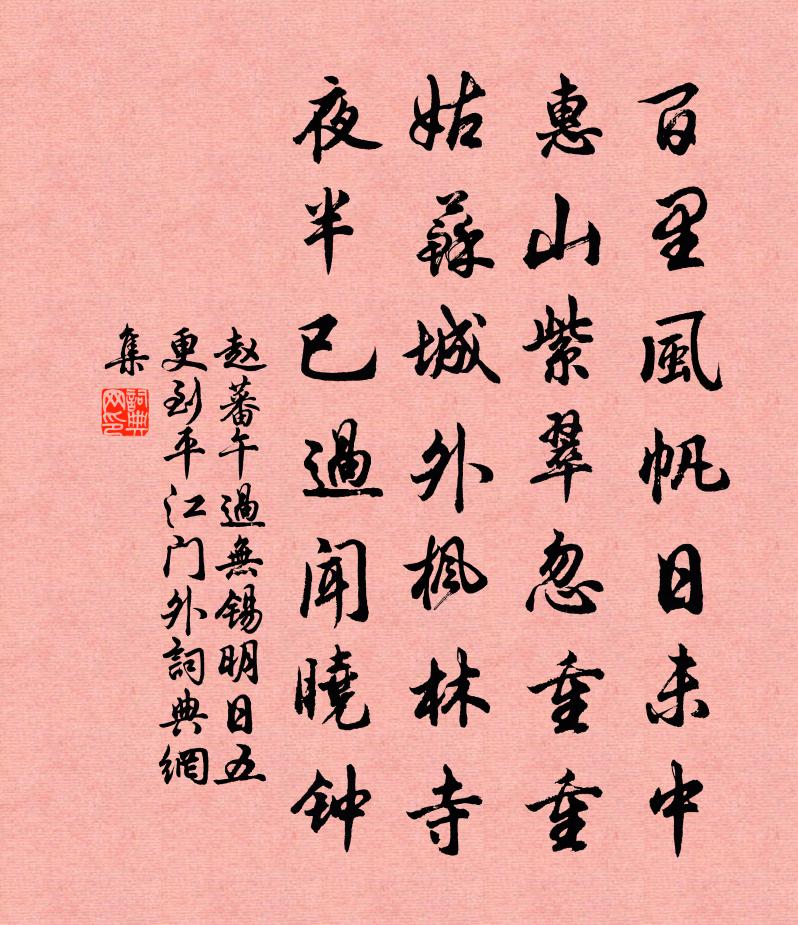 百里風帆日未中
惠山紫翠忽重重
姑蘇城外楓林寺
夜半已過聞曉钟
赵蕃午過無锡明日五
更到平江门外詞典網
集
詞典网印